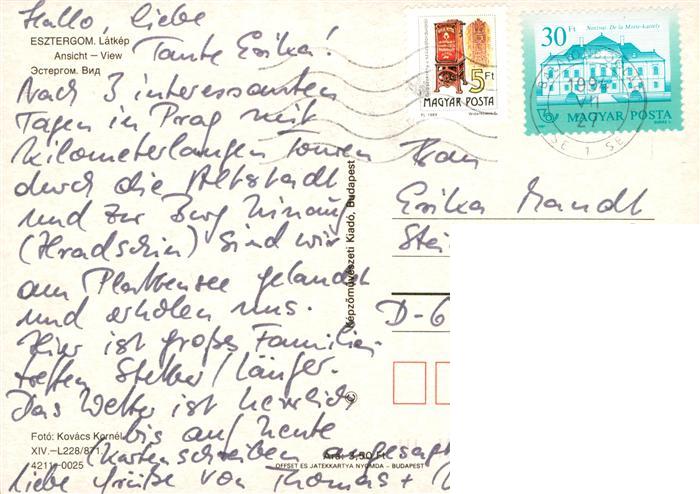 Hallo, liebe
Tante Erika!
Nach 3 interessanten
Tagen in Prag mit
kilometerlangen Touren
durch die Altstadt
und zur Burg hinauf
(Hradschin) sind wir
am Plattensee gelandet
und erholen uns.
Hier ist großes Familien-
treffen
Das Wetter ist herrlich
bis auf heute
(Kartenschreiben angesagt
liebe Grüße von Thomas +
ESZTERGOM. Látkép
Ansicht – View
Эстергом. Вид
Fotó: Kovács Kornél
XIV.–L228/871
42111-0025
Ára: 3,50 Ft
OFFSET ÉS JÁTÉKKÁRTYA NYOMDA - BUDAPEST
Képzőművészeti Kiadó, Budapest
©
5 Ft
MAGYAR POSTA
30 Ft
MAGYAR POSTA
Frau
Erika Mandl
D-6